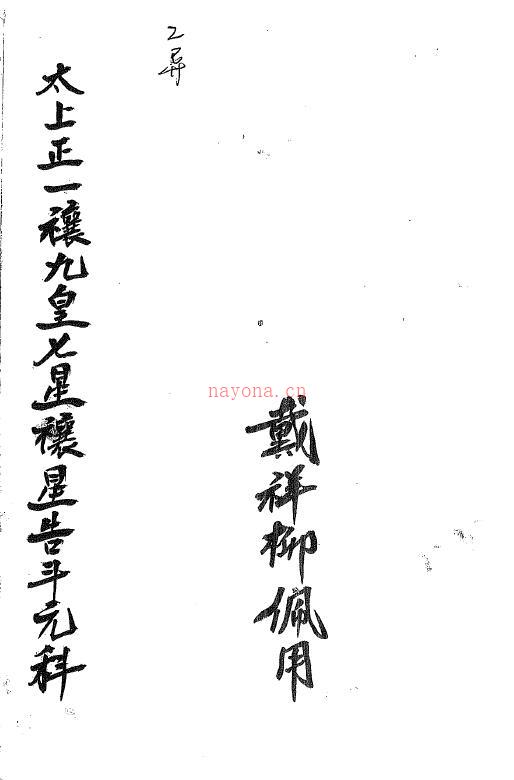 戴祥柳佩用
太上正一禳九皇七星禳星告斗元科
nayona.cn